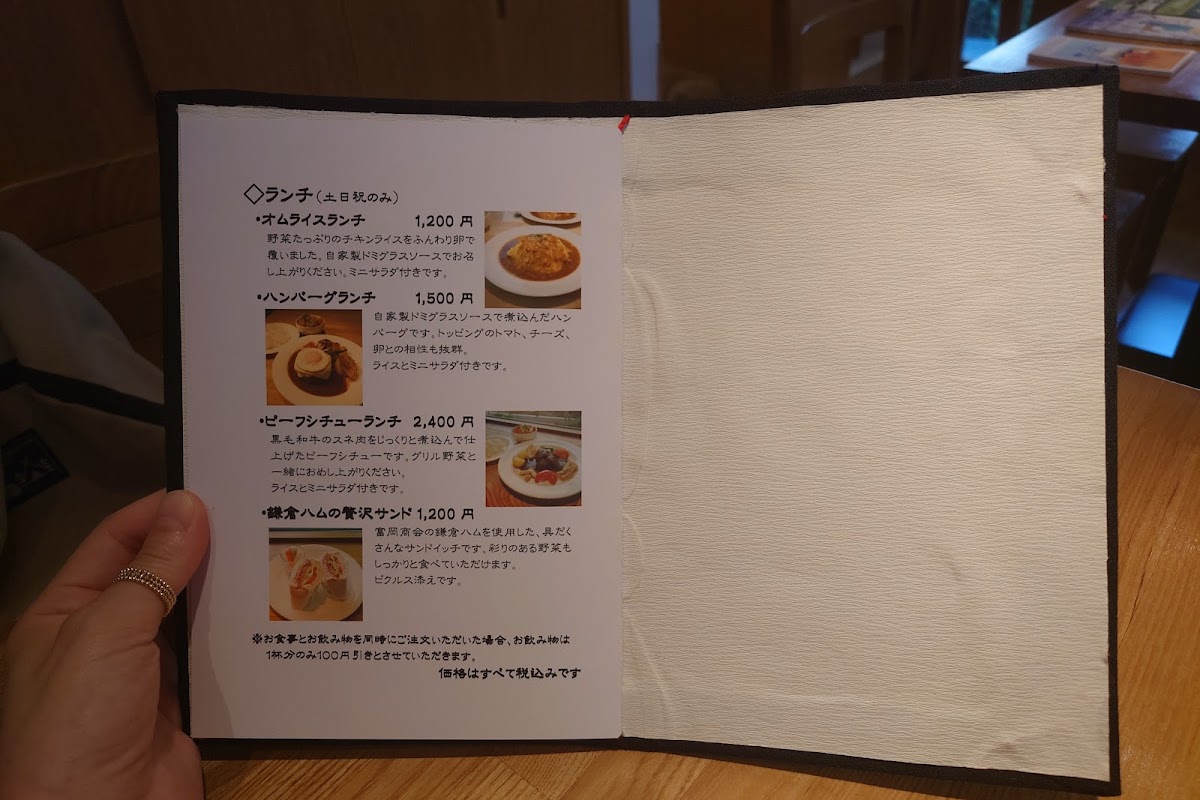 ◇ランチ（土日祝のみ）
・オムライスランチ 1,200 円
野菜たっぷりのチキンライスをふんわり卵で
覆いました。自家製ドミグラスソースでお召
し上がりください。ミニサラダ付きです。
・ハンバーグランチ 1,500 円
自家製ドミグラスソースで煮込んだハン
バーグです。トッピングのトマト、チーズ、
卵との相性も抜群。
ライスとミニサラダ付きです。
・ビーフシチューランチ 2,400 円
黒毛和牛のスネ肉をじっくりと煮込んで仕
上げたビーフシチューです。グリル野菜と
一緒におめし上がりください。
ライスとミニサラダ付きです。
・鎌倉ハムの贅沢サンド 1,200 円
富岡商会の鎌倉ハムを使用した、具だく
さんなサンドイッチです。彩りのある野菜も
しっかりと食べていただけます。
ピクルス添えです。
※お食事とお飲み物を同時にご注文いただいた場合、お飲み物は
1杯分のみ100円引きとさせていただきます。
価格はすべて税込みです